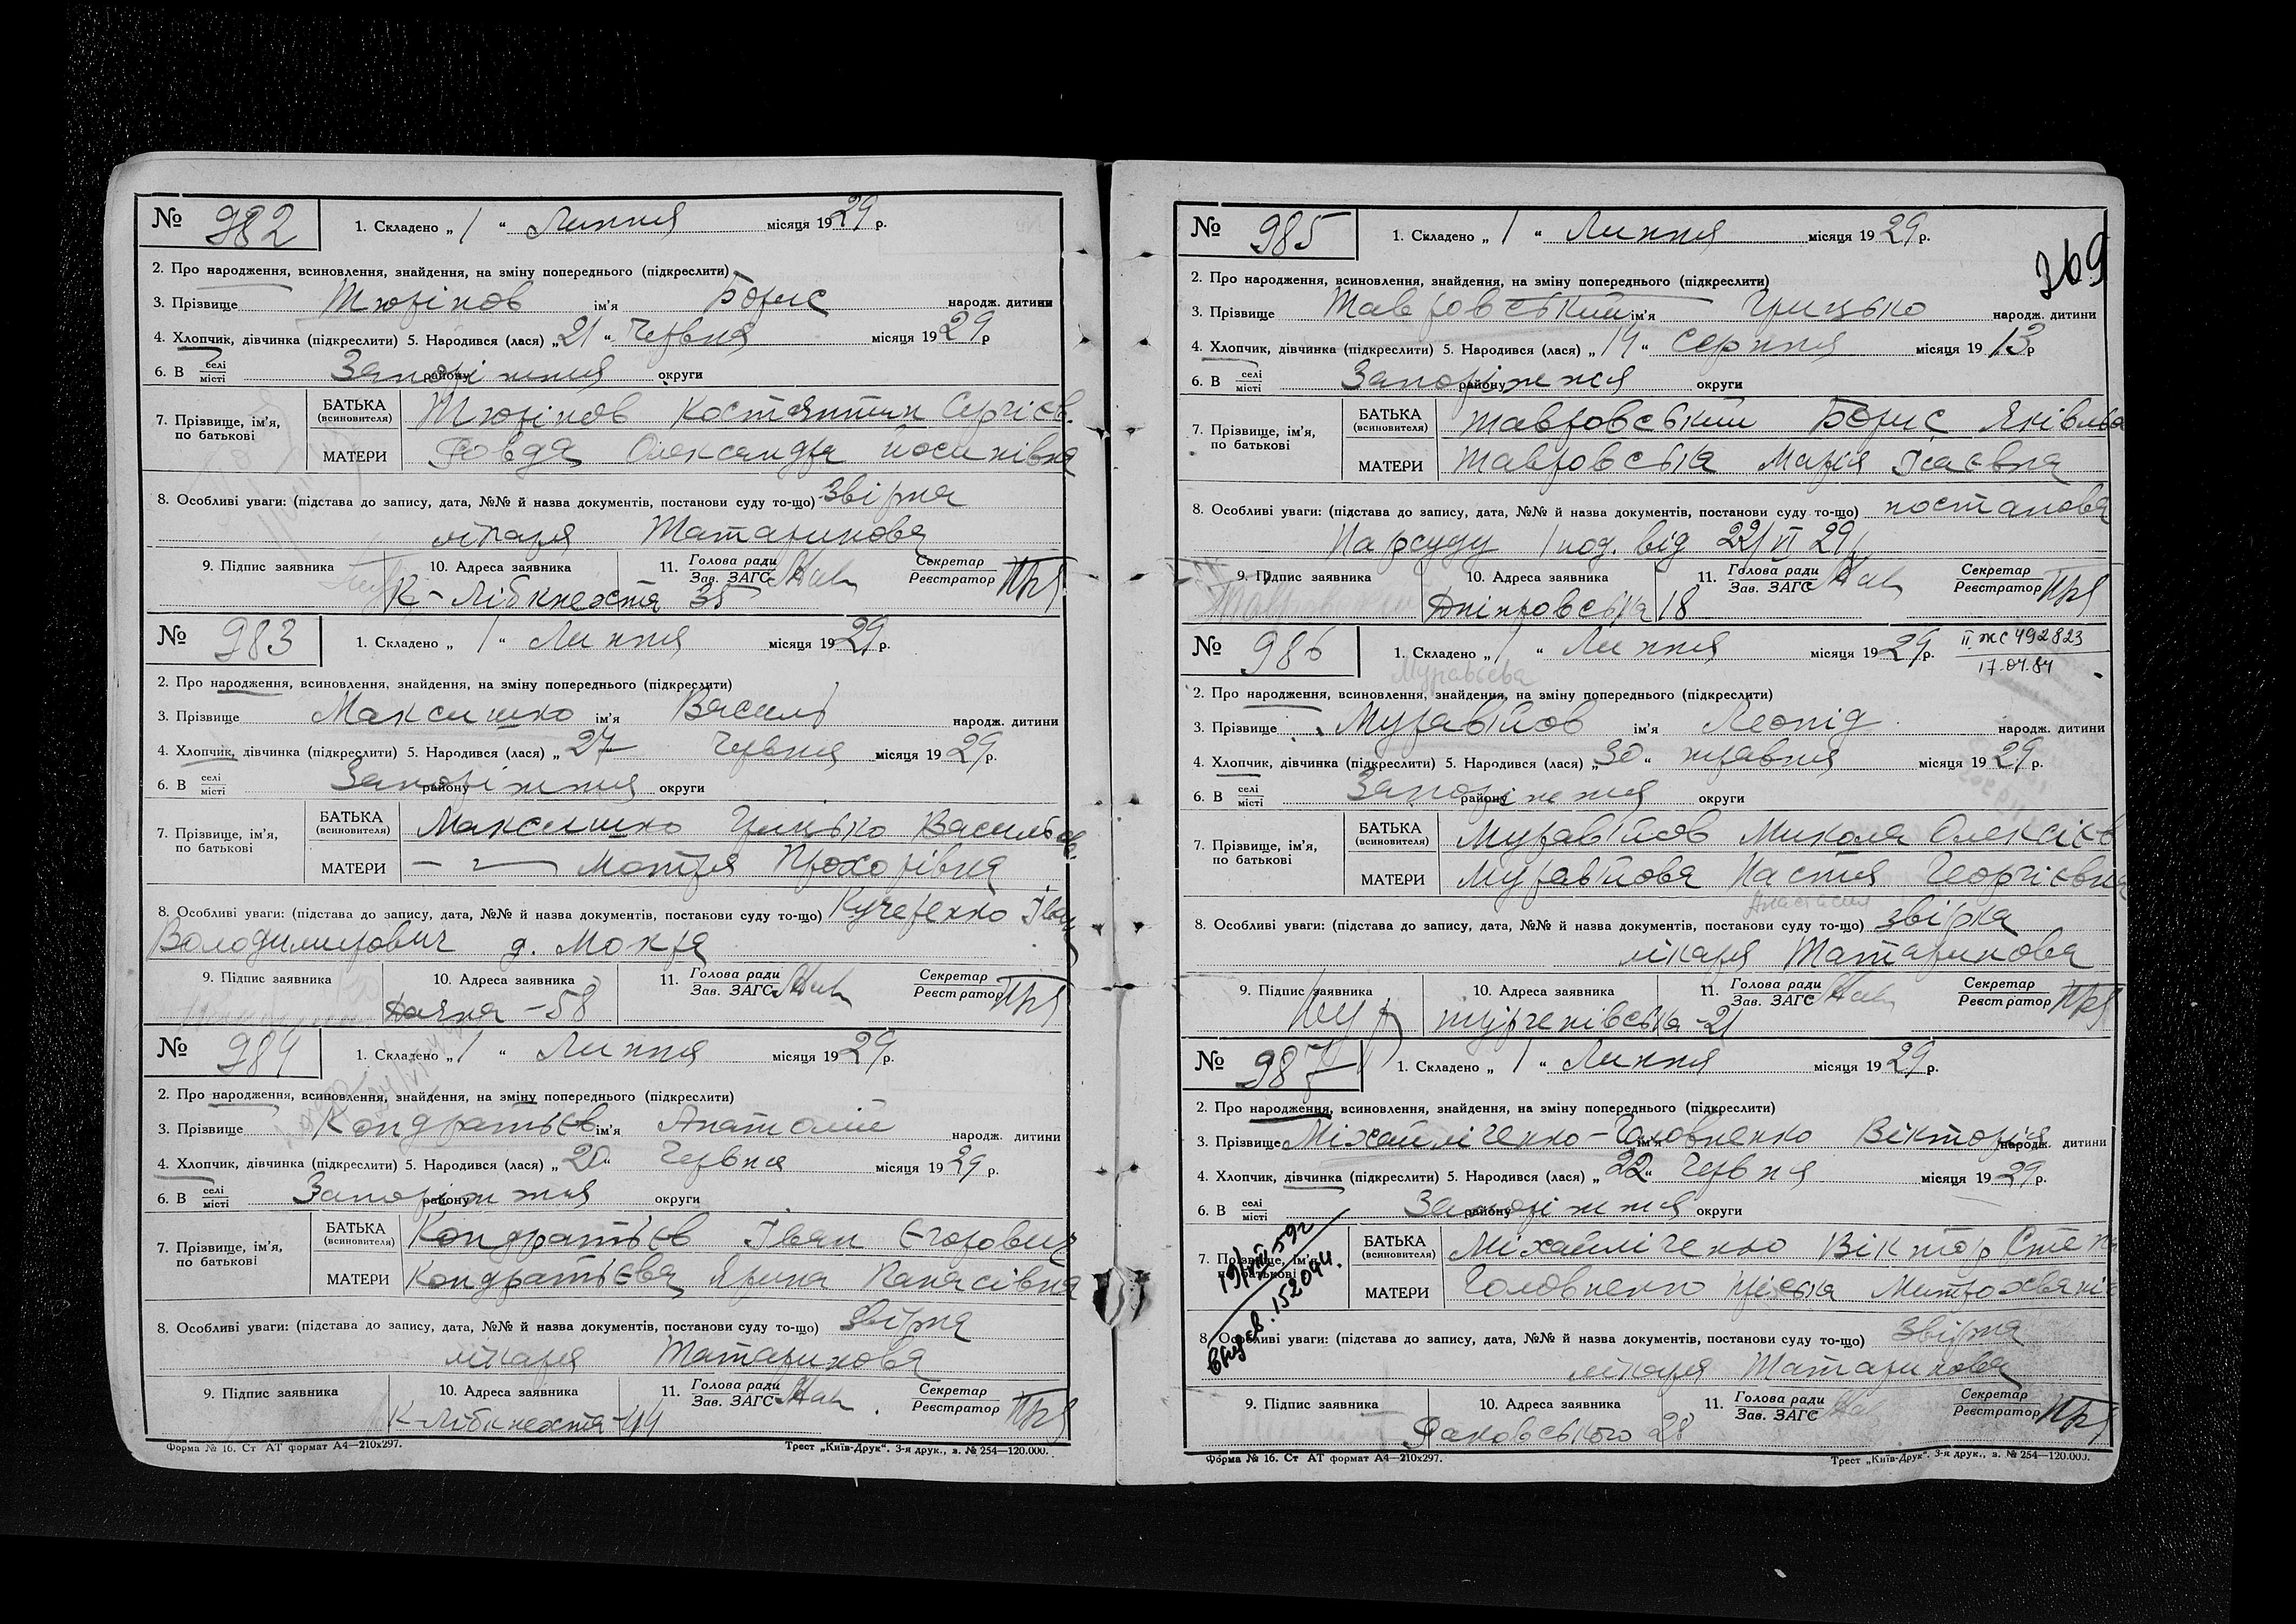 № 982 1. Складено „ 1 “ Липня місяця 1929 р.
2. Про народження, всиновлення, знайдення, на зміну попереднього (підкреслити)
3. Прізвище Тюрінов ім'я Борис народж. дитини
4. Хлопчик, дівчинка (підкреслити) 5. Народився (лася) „ 21 “ Червня місяця 1929 р
6. В селі місті Запоріжжя району округи
7. Прізвище, ім'я, по батькові БАТЬКА (всиновителя) Тюрінов Костянтин Сергієв.
МАТЕРИ Олександра Йосипівна
8. Особливі уваги: (підстава до запису, дата, №№ й назва документів, постанови суду то-що) звірка
лікаря Татаринова
9. Підпис заявника 10. Адреса заявника 11. Голова ради Зав. ЗАГС Секретар Реєстратор
К-Лібкнехта 35
№ 983 1. Складено „ 1 “ Липня місяця 1929 р.
2. Про народження, всиновлення, знайдення, на зміну попереднього (підкреслити)
3. Прізвище Максишко ім'я Василь народж. дитини
4. Хлопчик, дівчинка (підкреслити) 5. Народився (лася) „ 27 Червня місяця 1929 р.
6. В селі місті Запоріжжя району округи
7. Прізвище, ім'я, по батькові БАТЬКА (всиновителя) Максишко Грицько Васильов.
МАТЕРИ — „ — Мотря Прохорівна
8. Особливі уваги: (підстава до запису, дата, №№ й назва документів, постанови суду то-що) Кучеренко Іван
Володимирович д. Мокра
9. Підпис заявника 10. Адреса заявника 11. Голова ради Зав. ЗАГС Секретар Реєстратор
Дачна - 58
№ 984 1. Складено „ 1 “ Липня місяця 1929 р.
2. Про народження, всиновлення, знайдення, на зміну попереднього (підкреслити)
3. Прізвище Кондратьєв ім'я Анатолій народж. дитини
4. Хлопчик, дівчинка (підкреслити) 5. Народився (лася) „ 20 “ Червня місяця 1929 р.
6. В селі місті Запоріжжя району округи
7. Прізвище, ім'я, по батькові БАТЬКА (всиновителя) Кондратьєв Іван Єгорович
МАТЕРИ Кондратьєва Ярина Панасівна
8. Особливі уваги: (підстава до запису, дата, №№ й назва документів, постанови суду то-що) звірка
лікаря Татаринова
9. Підпис заявника 10. Адреса заявника 11. Голова ради Зав. ЗАГС Секретар Реєстратор
К-Лібкнехта-44
Форма № 16. Ст АТ формат А4—210х297. Трест „Київ-Друк". 3-я друк., з. № 254—120.000.
269
№ 985 1. Складено „ 1 “ Липня місяця 1929 р.
2. Про народження, всиновлення, знайдення, на зміну попереднього (підкреслити)
3. Прізвище Тавровський ім'я Грицько народж. дитини
4. Хлопчик, дівчинка (підкреслити) 5. Народився (лася) „ 14 “ Серпня місяця 1913 р
6. В селі місті Запоріжжя району округи
7. Прізвище, ім'я, по батькові БАТЬКА (всиновителя) Тавровський Борис Яківльов
МАТЕРИ Тавровська Марія Ісаєвна
8. Особливі уваги: (підстава до запису, дата, №№ й назва документів, постанови суду то-що) постанова
Нарсуду 1 від 22/VI 29
9. Підпис заявника 10. Адреса заявника 11. Голова ради Зав. ЗАГС Секретар Реєстратор
Дніпровська 18
№ 986 1. Складено „ 1 “ Липня місяця 1929 р. II ЖС 492823
17.04.84
Муравьева
2. Про народження, всиновлення, знайдення, на зміну попереднього (підкреслити)
3. Прізвище Муравйов ім'я Леонід народж. дитини
4. Хлопчик, дівчинка (підкреслити) 5. Народився (лася) „ 30 “ травня місяця 1929 р.
6. В селі місті Запоріжжя району округи
7. Прізвище, ім'я, по батькові БАТЬКА (всиновителя) Муравйов Микола Олексієв
МАТЕРИ Муравйова Настя Георгієвна
Анастасия
8. Особливі уваги: (підстава до запису, дата, №№ й назва документів, постанови суду то-що) звірка
лікаря Татаринова
9. Підпис заявника 10. Адреса заявника 11. Голова ради Зав. ЗАГС Секретар Реєстратор
Тургенівська-21
№ 987 1. Складено „ 1 “ Липня місяця 1929 р.
2. Про народження, всиновлення, знайдення, на зміну попереднього (підкреслити)
3. Прізвище Міхайліченко-Головненко ім'я Вікторія народж. дитини
4. Хлопчик, дівчинка (підкреслити) 5. Народився (лася) „ 22 “ Червня місяця 1929 р.
6. В селі місті Запоріжжя району округи
7. Прізвище, ім'я, по батькові БАТЬКА (всиновителя) Міхайліченко Віктор Степа
МАТЕРИ Головненко Митрохвані
8. Особливі уваги: (підстава до запису, дата, №№ й назва документів, постанови суду то-що) звірка
лікаря Татаринова
9. Підпис заявника 10. Адреса заявника 11. Голова ради Зав. ЗАГС Секретар Реєстратор
Раковського 28
Форма № 16. Ст АТ формат А4—210х297. Трест „Київ-Друк". 3-я друк., з. № 254—120.000.